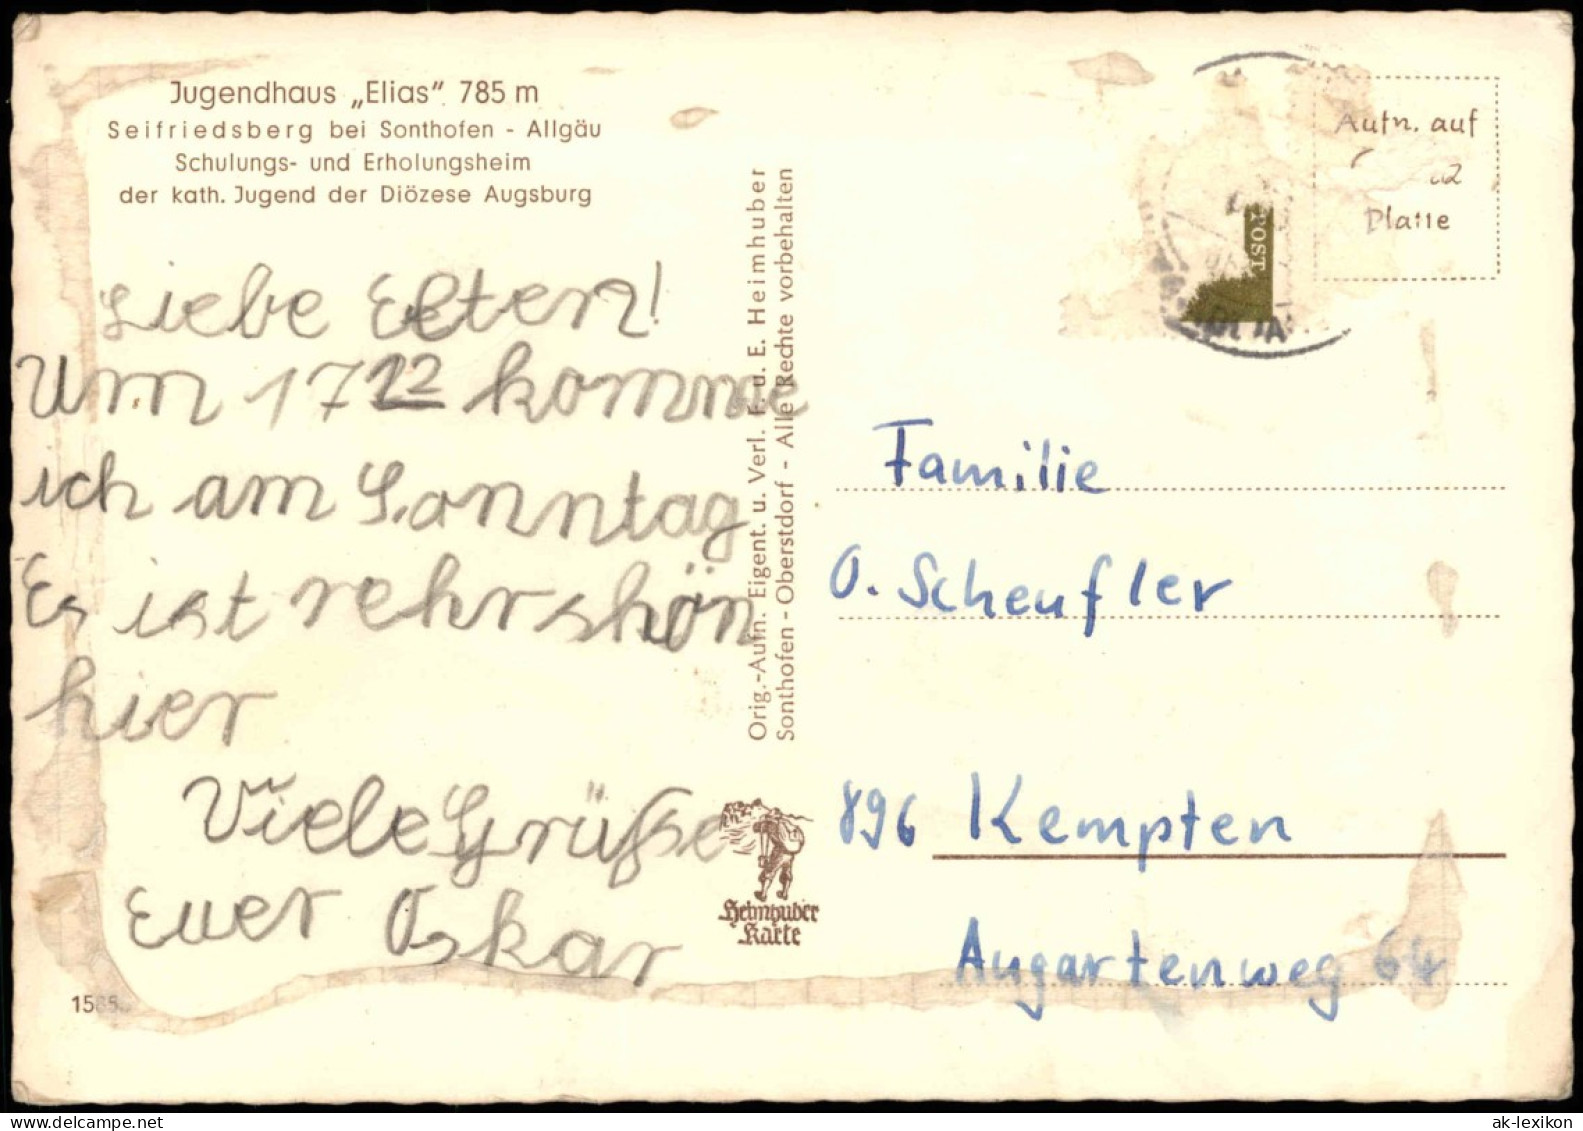 Jugendhaus „Elias" 785 m
Seifriedsberg bei Sonthofen - Allgäu
Schulungs- und Erholungsheim
der kath. Jugend der Diözese Augsburg
Liebe Eltern!
Um 17 12 komme
ich am Sonntag
Es ist rehr shön
hier
Viele Grüße
Euer Oskar
15
Orig.-Aufn. Eigent. u. Verl. F. u. E. Heimhuber
Sonthofen - Oberstdorf - Alle Rechte vorbehalten
Heimhuber
Karte
POST
Aufn. auf
Platte
Familie
O. Scheufler
896 Kempten
Augartenweg 64
ak-lexikon